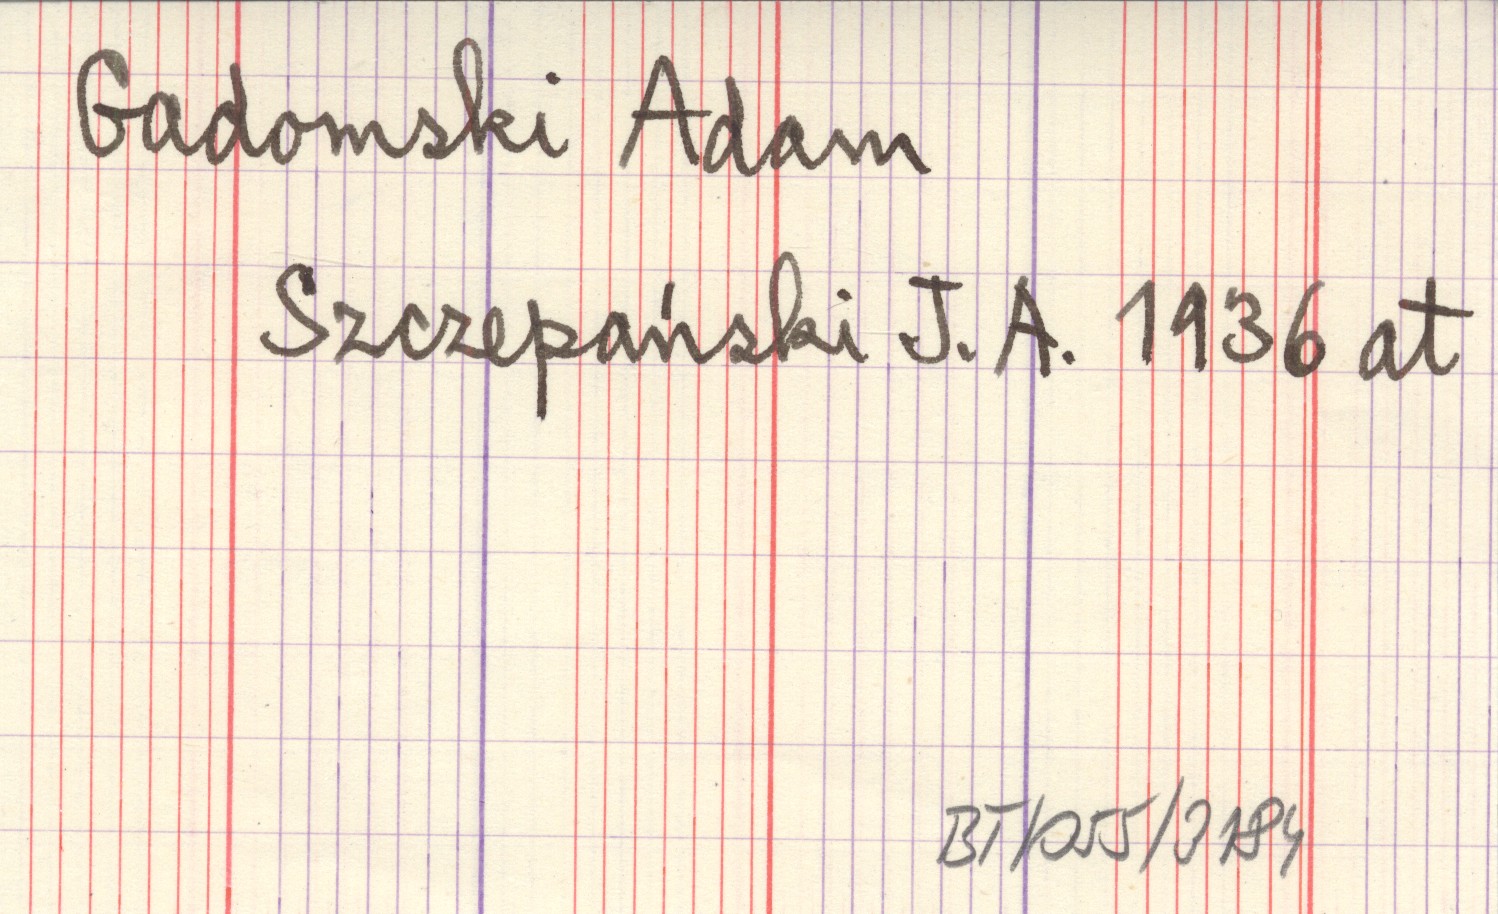 Gadomski Adam
Szczepański J. A. 1936 at
BT/055/3184